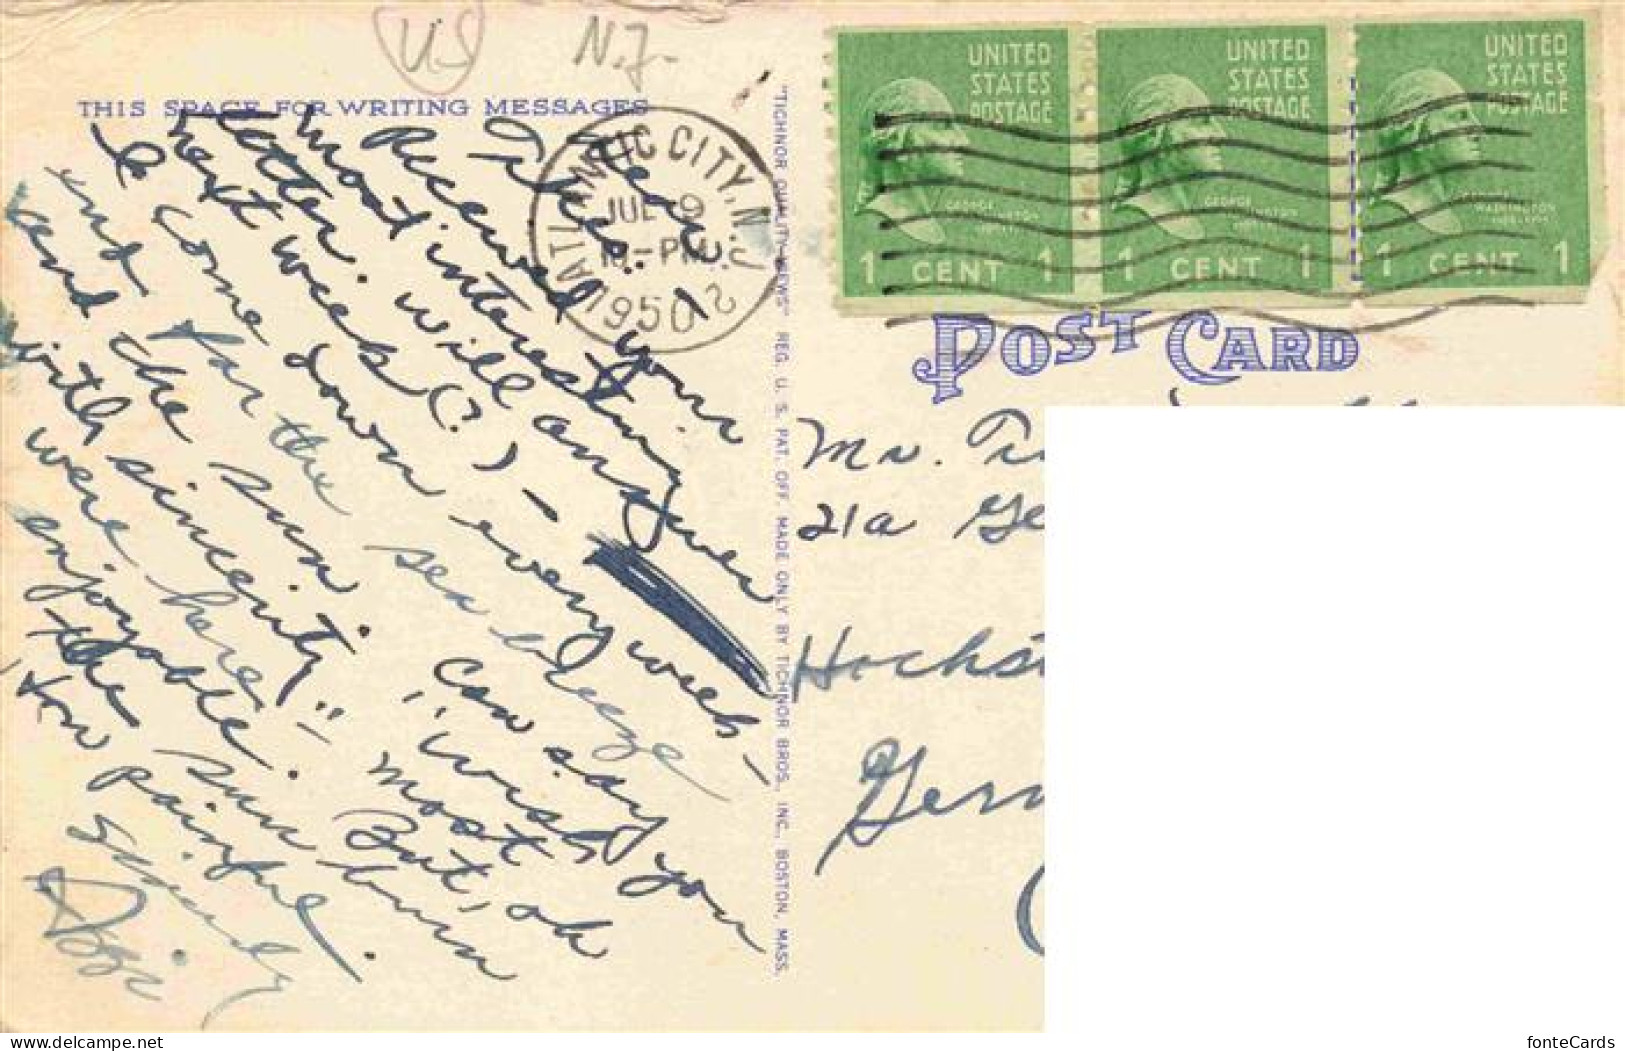 US
N.J.
THIS SPACE FOR WRITING MESSAGES
ATLANTIC CITY, N.J.
JUL 9
PM
1950
2
Dear
Received your
most interesting
letter. Will answer
next week (?) –
I come down every week-
end for the sea breeze
and the sun. Can say
with sincerity "wish you
were here" most
enjoyable. But, oh
the sun burn
How painful.
Sincerely
Ozzi
"TICHNOR QUALITY VIEWS" REG. U. S. PAT. OFF. MADE ONLY BY TICHNOR BROS., INC., BOSTON, MASS.
UNITED STATES POSTAGE
GEORGE WASHINGTON
1 CENT 1
UNITED STATES POSTAGE
GEORGE WASHINGTON
1 CENT 1
UNITED STATES POSTAGE
GEORGE WASHINGTON
1 CENT 1
POST CARD
Mr.
21a
delcampe.net
fonteCards